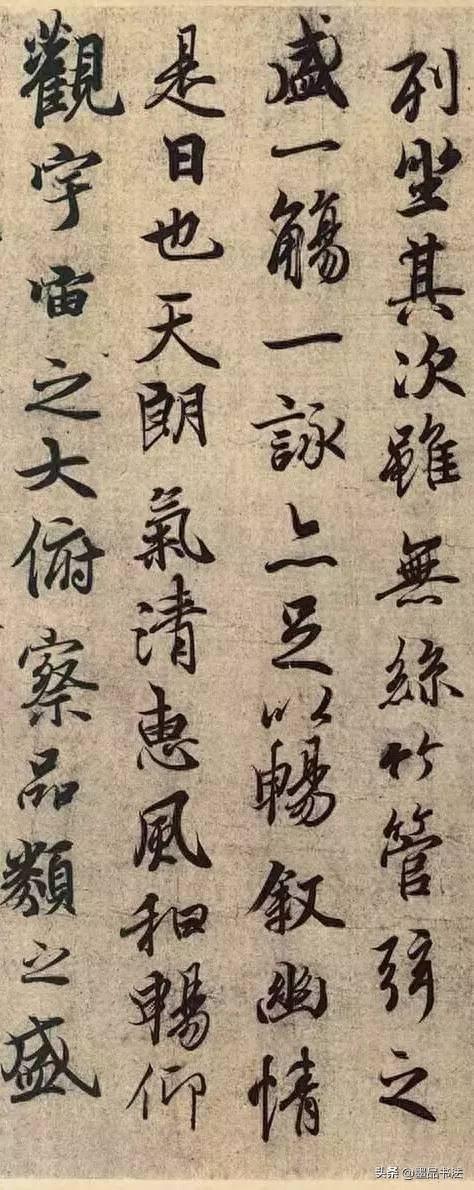 列坐其次雖無絲竹管弦之
盛一觴一詠亦足以暢敘幽情
是日也天朗氣清惠風和暢仰
觀宇宙之大俯察品類之盛
头条@墨品书法